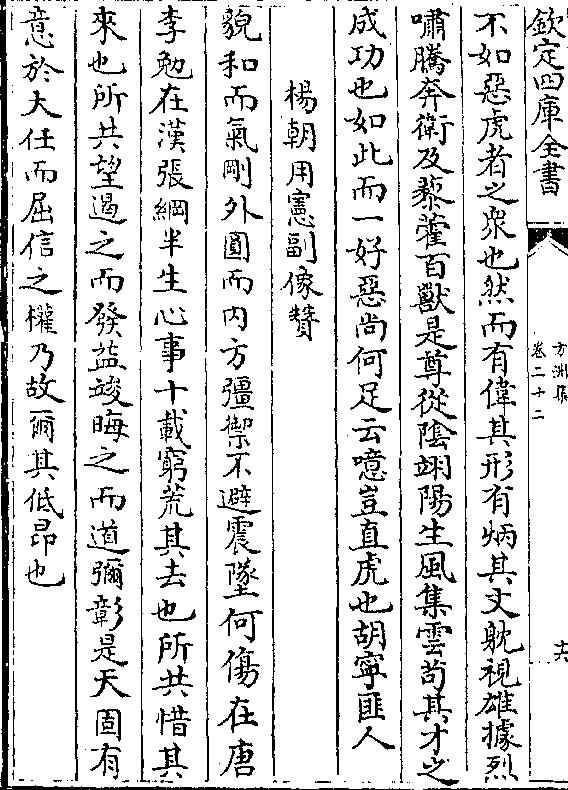 欽定四庫全書
方洲集
卷二十二
十六
不如惡虎者之衆也然而有偉其形有炳其文躭視雄據烈
嘯騰奔衛及藜藿百獸是尊從陰翊陽生風集雲苟其才之
成功也如此而一好惡尚何足云噫豈直虎也胡寧匪人
楊朝用憲副像贊
貌和而氣剛外圓而内方彊禦不避震墜何傷在唐
李勉在漢張綱半生心事十載窮荒其去也所共惜其
來也所共望遏之而發益竣晦之而道彌彰是天固有
意於大任而屈信之權乃故爾其低昂也